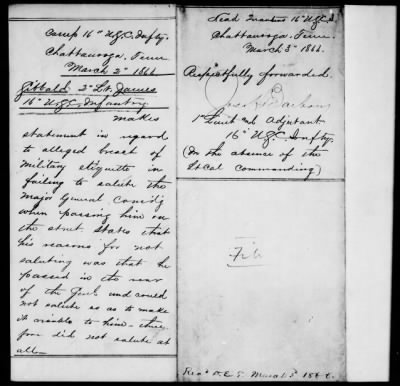 Camp 16th U.S.C. Infty.
Chattanooga, Tenn
March 2d 1864
2d Lt. James
16th U.S.C. Infantry
makes
statement in regard
to alleged breach of
military etiquette in
failing to salute the
Major General comd'g
when passing him on
the street States that
his reasons for not
saluting was that he
passed in the rear
of the Genl. and could
not salute so as to make
it visible to him - there
fore did not salute at
all
Head Quarters 16th U.S.C.I.
Chattanooga, Tenn.
March 3d 1864.
Respectfully forwarded.
1st Lieut and Adjutant
16th U.S.C. Infty.
(In the absence of the
Lt Col Commanding)
File